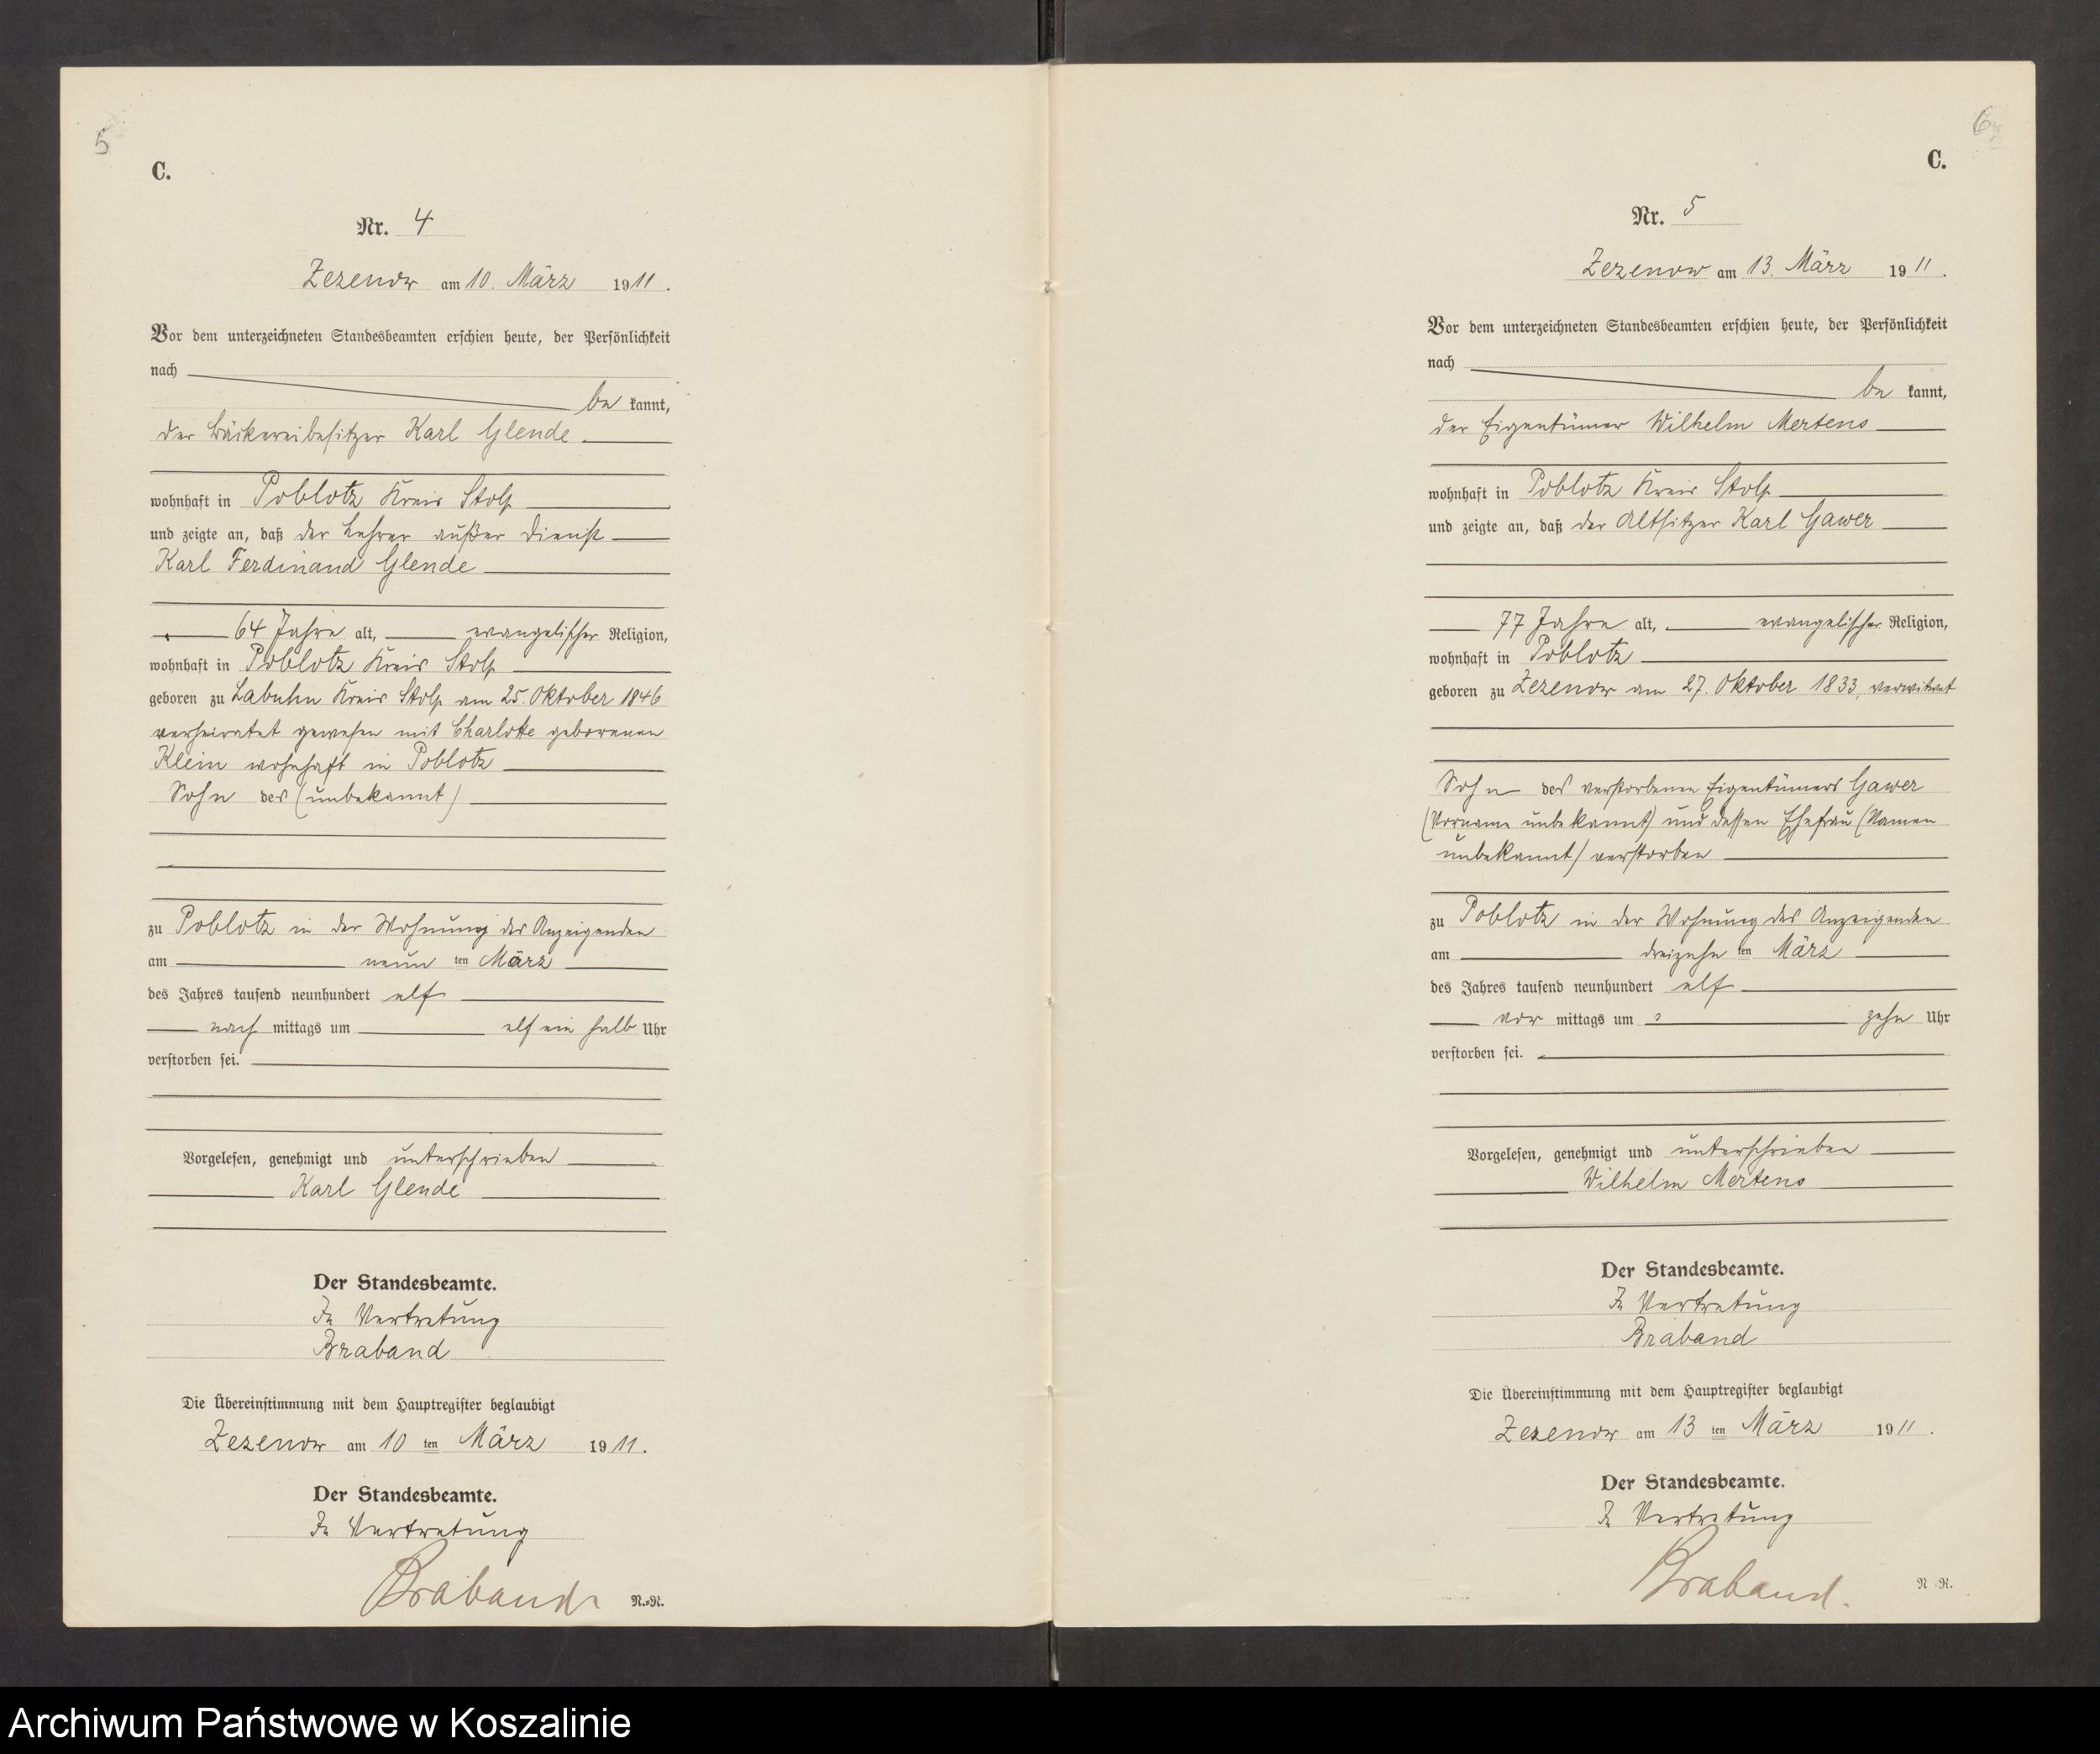 5
C.
Nr. 4
Zezenow am 10. März 1911.
Vor dem unterzeichneten Standesbeamten erschien heute, der Persönlichkeit
nach
be kannt,
der Bäckereibesitzer Karl Glende
wohnhaft in Poblotz Kreis Stolp
und zeigte an, daß der Lehrer außer Dienst
Karl Ferdinand Glende
64 Jahre alt, evangelischer Religion,
wohnhaft in Poblotz Kreis Stolp
geboren zu Labuhn Kreis Stolp am 25. Oktober 1846
verheiratet gewesen mit Charlotte geborenen
Klein wohnhaft in Poblotz
Sohn des (unbekannt)
zu Poblotz in der Wohnung des Anzeigenden
am neun ten März
des Jahres tausend neunhundert elf
nach mittags um elf ein halb Uhr
verstorben sei.
Vorgelesen, genehmigt und unterschrieben
Karl Glende
Der Standesbeamte.
In Vertretung
Braband
Die Übereinstimmung mit dem Hauptregister beglaubigt
Zezenow am 10 ten März 1911.
Der Standesbeamte.
In Vertretung
Braband
N.=N.
6
C.
Nr. 5
Zezenow am 13. März 1911.
Vor dem unterzeichneten Standesbeamten erschien heute, der Persönlichkeit
nach
be kannt,
der Eigentümer Wilhelm Mertens
wohnhaft in Poblotz Kreis Stolp
und zeigte an, daß der Altsitzer Karl Gawer
77 Jahre alt, evangelischer Religion,
wohnhaft in Poblotz
geboren zu Zezenow am 27. Oktober 1833, verwitwet
Sohn des verstorbenen Eigentümers Gawer
(Vorname unbekannt) und dessen Ehefrau (Namen
unbekannt) verstorben
zu Poblotz in der Wohnung des Anzeigenden
am dreizehn ten März
des Jahres tausend neunhundert elf
vor mittags um zehn Uhr
verstorben sei.
Vorgelesen, genehmigt und unterschrieben
Wilhelm Mertens
Der Standesbeamte.
In Vertretung
Braband
Die Übereinstimmung mit dem Hauptregister beglaubigt
Zezenow am 13 ten März 1911.
Der Standesbeamte.
In Vertretung
Braband.
N.=N.
Archiwum Państwowe w Koszalinie